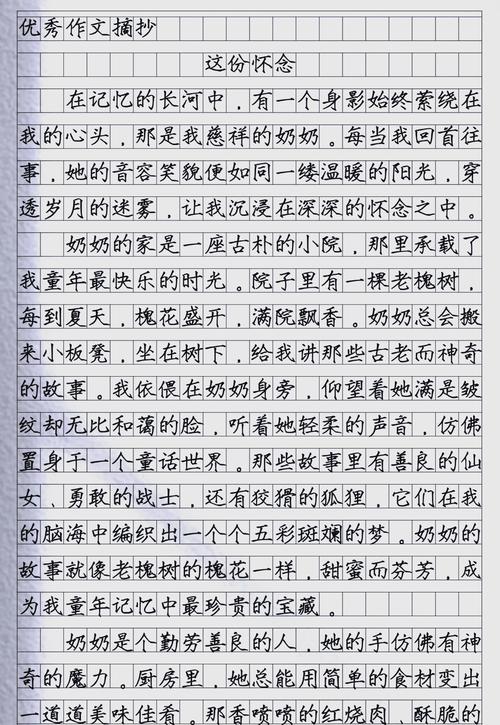 优秀作文摘抄
这份怀念
在记忆的长河中，有一个身影始终萦绕在
我的心头，那是我慈祥的奶奶。每当我回首往
事，她的音容笑貌便如同一缕温暖的阳光，穿
透岁月的迷雾，让我沉浸在深深的怀念之中。
奶奶的家是一座古朴的小院，那里承载了
我童年最快乐的时光。院子里有一棵老槐树，
每到夏天，槐花盛开，满院飘香。奶奶总会搬
来小板凳，坐在树下，给我讲那些古老而神奇
的故事。我依偎在奶奶身旁，仰望着她满是皱
纹却无比和蔼的脸，听着她轻柔的声音，仿佛
置身于一个童话世界。那些故事里有善良的仙
女、勇敢的战士，还有狡猾的狐狸，它们在我
的脑海中编织出一个个五彩斑斓的梦。奶奶的
故事就像老槐树的槐花一样，甜蜜而芬芳，成
为我童年记忆中最珍贵的宝藏。
奶奶是个勤劳善良的人，她的手仿佛有神
奇的魔力。厨房里，她总能用简单的食材变出
一道道美味佳肴。那香喷喷的红烧肉，酥脆的